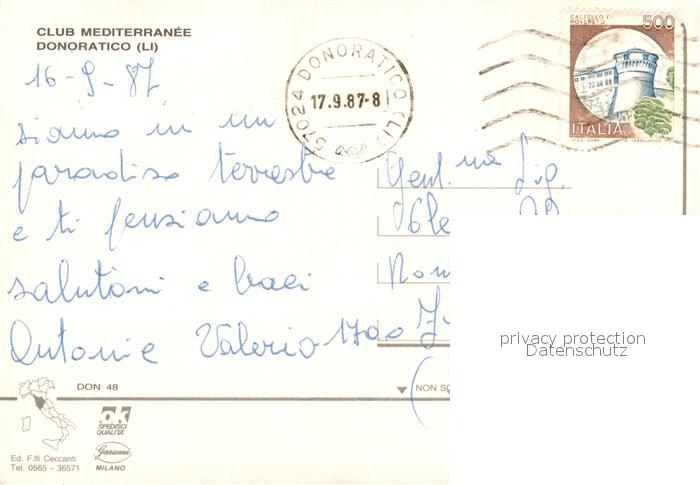 CLUB MEDITERRANÉE
DONORATICO (LI)
16-9-87
siamo in un
paradiso terrestre
e ti pensiamo
salutoni e baci
Antonio e Valerio
57024 DONORATICO (LI)
17.9.87-8
CASTELLO DI
ROVERETO
500
ITALIA
Gent.ma Sig.
1700
privacy protection
Datenschutz
DON 48
ok
SPEDISCI
QUALITÀ
Garami
MILANO
Ed. F.lli Ceccanti
Tel. 0565 - 36571